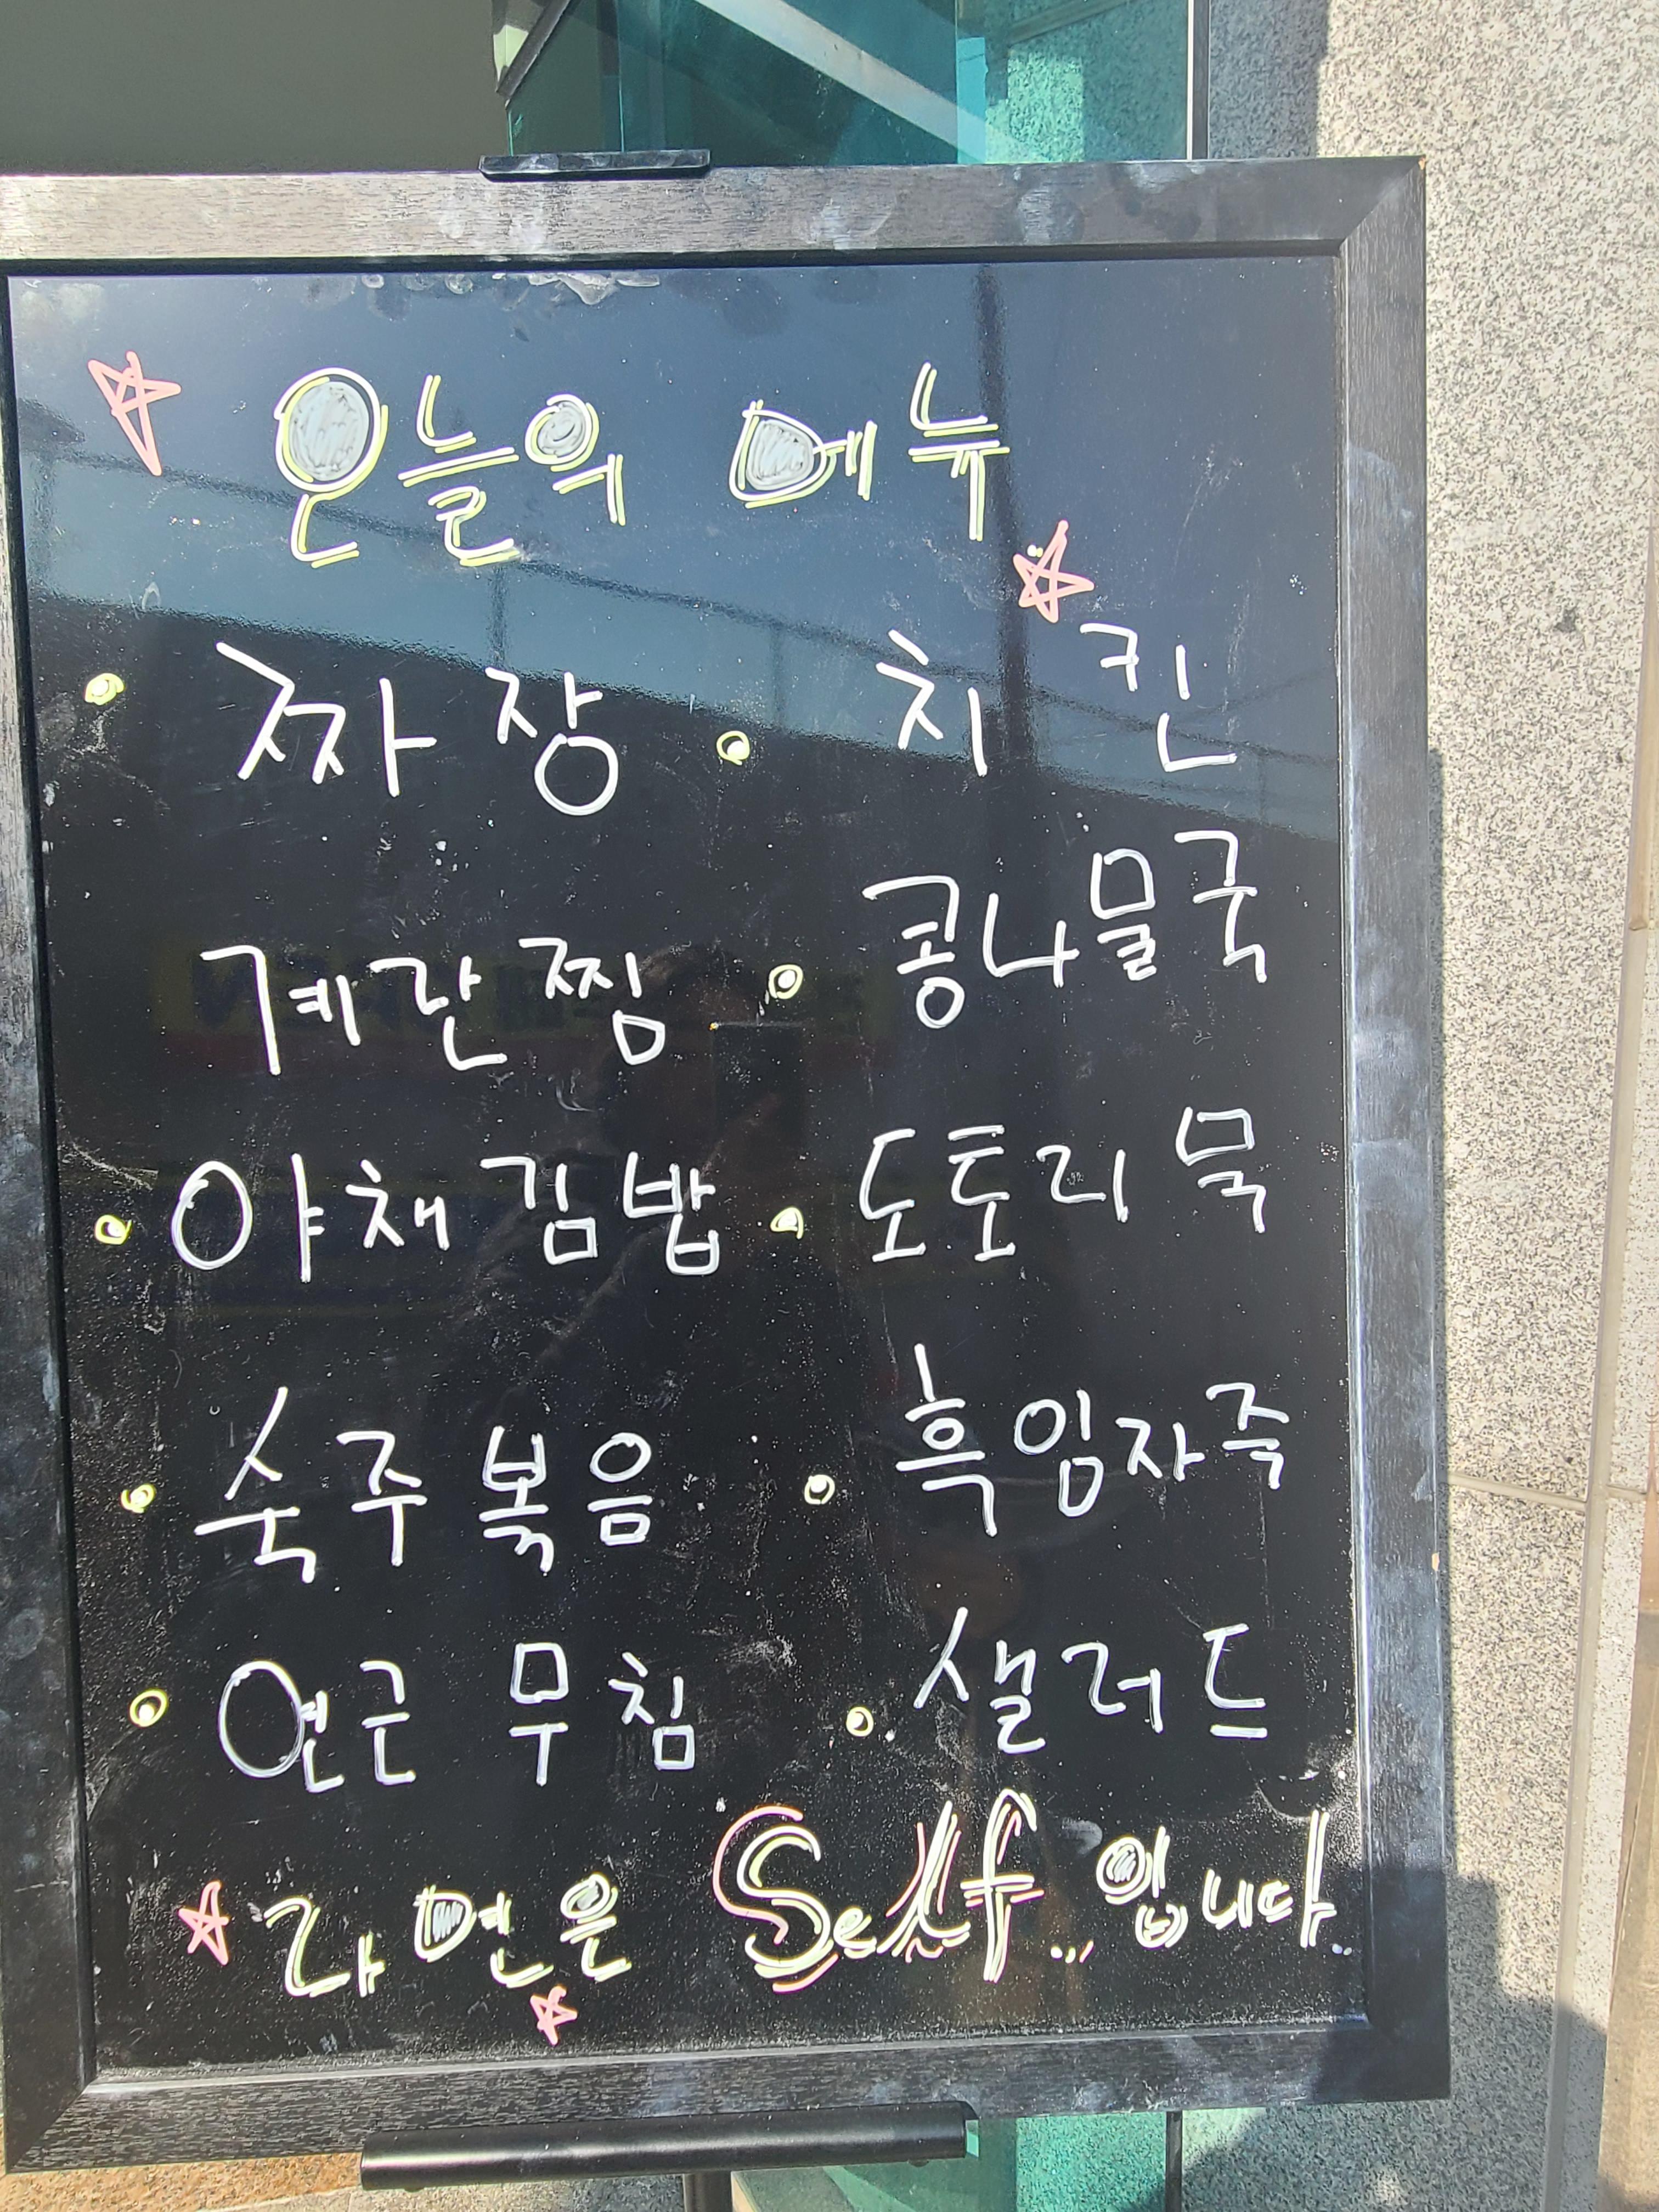 오늘의 메뉴
짜장 치킨
계란찜 콩나물국
야채김밥 도토리묵
숙주볶음 흑임자죽
연근 무침 샐러드
라면은 Self... 입니다..